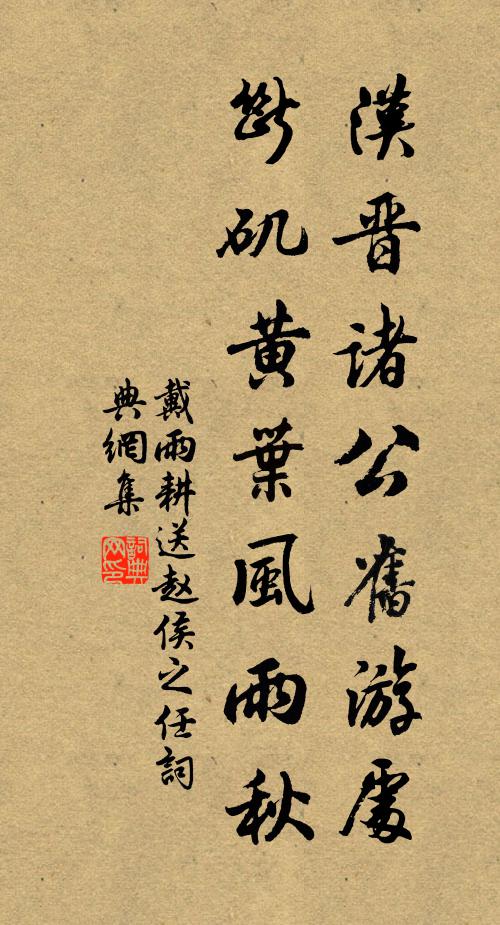 漢晋諸公舊游處
斷矶黄葉風雨秋
戴雨耕送赵侯之任詞
典網集
詞典
网印